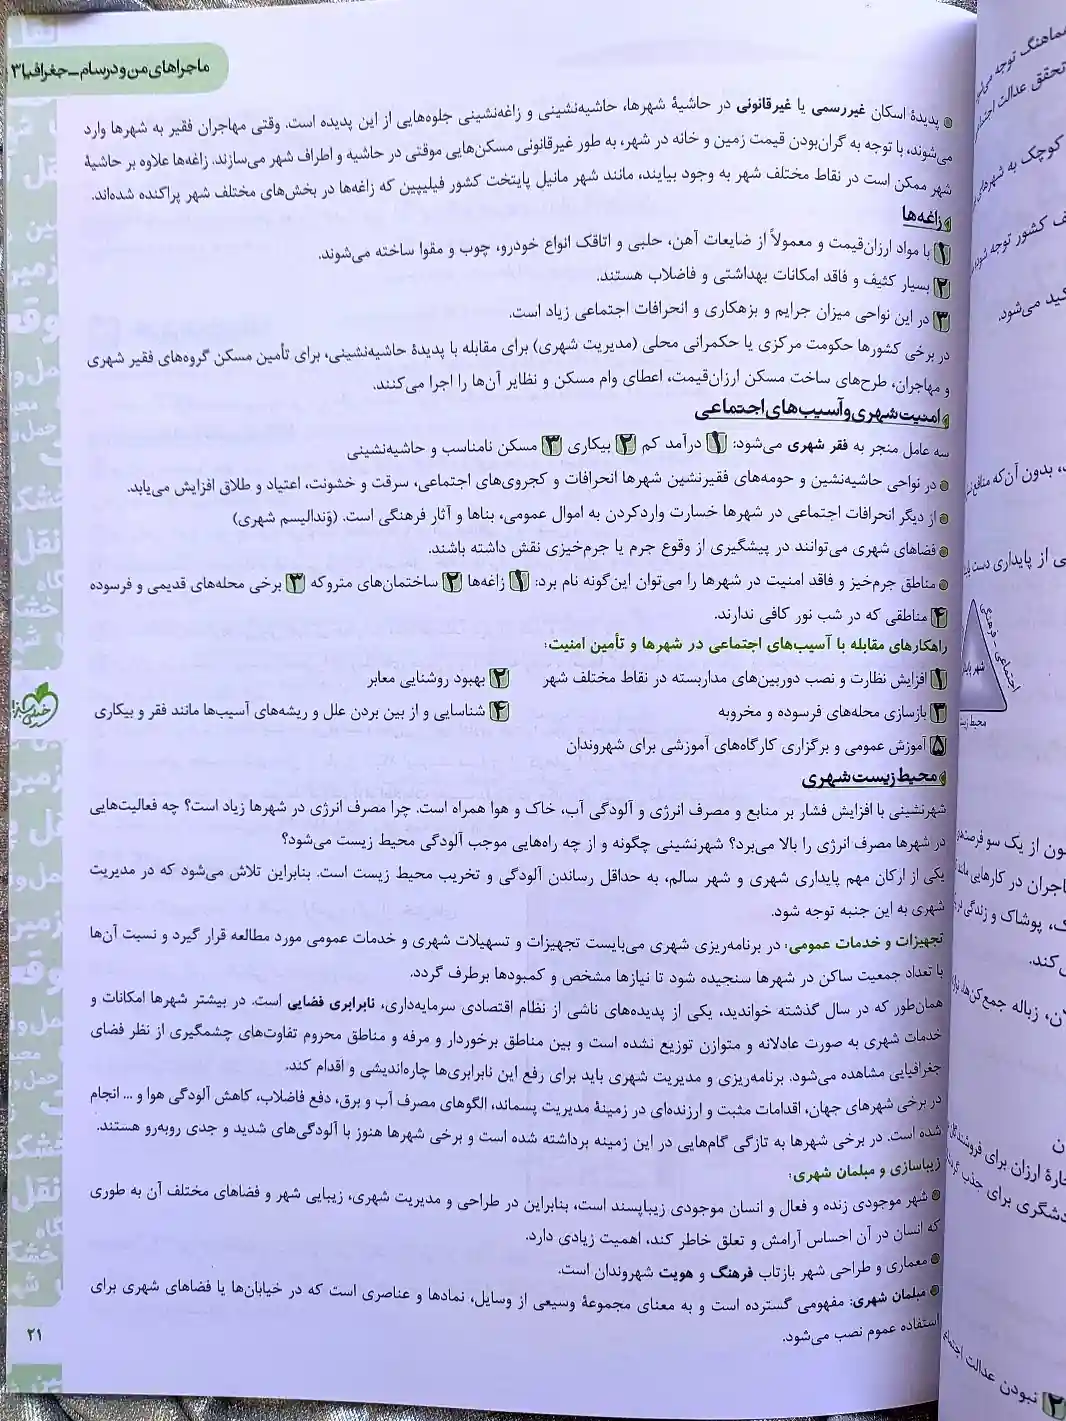 ماجراهای من و درسام - جغرافیا ۳
پدیدهٔ اسکان غیررسمی یا غیرقانونی در حاشیهٔ شهرها، حاشیه‌نشینی و زاغه‌نشینی جلوه‌هایی از این پدیده است. وقتی مهاجران فقیر به شهرها وارد
می‌شوند، با توجه به گران‌بودن قیمت زمین و خانه در شهر، به طور غیرقانونی مسکن‌هایی موقتی در حاشیه و اطراف شهر می‌سازند. زاغه‌ها علاوه بر حاشیهٔ
شهر ممکن است در نقاط مختلف شهر به وجود بیایند، مانند شهر مانیل پایتخت کشور فیلیپین که زاغه‌ها در بخش‌های مختلف شهر پراکنده شده‌اند.
زاغه‌ها
۱ با مواد ارزان‌قیمت و معمولاً از ضایعات آهن، حلبی و اتاقک انواع خودرو، چوب و مقوا ساخته می‌شوند.
۲ بسیار کثیف و فاقد امکانات بهداشتی و فاضلاب هستند.
۳ در این نواحی میزان جرایم و بزهکاری و انحرافات اجتماعی زیاد است.
در برخی کشورها حکومت مرکزی یا حکمرانی محلی (مدیریت شهری) برای مقابله با پدیدهٔ حاشیه‌نشینی، برای تأمین مسکن گروه‌های فقیر شهری
و مهاجران، طرح‌های ساخت مسکن ارزان‌قیمت، اعطای وام مسکن و نظایر آن‌ها را اجرا می‌کنند.
امنیت شهری و آسیب‌های اجتماعی
سه عامل منجر به فقر شهری می‌شود: ۱ درآمد کم ۲ بیکاری ۳ مسکن نامناسب و حاشیه‌نشینی
در نواحی حاشیه‌نشین و حومه‌های فقیرنشین شهرها انحرافات و کجروی‌های اجتماعی، سرقت و خشونت، اعتیاد و طلاق افزایش می‌یابد.
از دیگر انحرافات اجتماعی در شهرها خسارت واردکردن به اموال عمومی، بناها و آثار فرهنگی است. (وَندالیسم شهری)
فضاهای شهری می‌توانند در پیشگیری از وقوع جرم یا جرم‌خیزی نقش داشته باشند.
مناطق جرم‌خیز و فاقد امنیت در شهرها را می‌توان این‌گونه نام برد: ۱ زاغه‌ها ۲ ساختمان‌های متروکه ۳ برخی محله‌های قدیمی و فرسوده
۴ مناطقی که در شب نور کافی ندارند.
راهکارهای مقابله با آسیب‌های اجتماعی در شهرها و تأمین امنیت:
۱ افزایش نظارت و نصب دوربین‌های مداربسته در نقاط مختلف شهر ۲ بهبود روشنایی معابر
۳ بازسازی محله‌های فرسوده و مخروبه ۴ شناسایی و از بین بردن علل و ریشه‌های آسیب‌ها مانند فقر و بیکاری
۵ آموزش عمومی و برگزاری کارگاه‌های آموزشی برای شهروندان
محیط زیست شهری
شهرنشینی با افزایش فشار بر منابع و مصرف انرژی و آلودگی آب، خاک و هوا همراه است. چرا مصرف انرژی در شهرها زیاد است؟ چه فعالیت‌هایی
در شهرها مصرف انرژی را بالا می‌برد؟ شهرنشینی چگونه و از چه راه‌هایی موجب آلودگی محیط زیست می‌شود؟
یکی از ارکان مهم پایداری شهری و شهر سالم، به حداقل رساندن آلودگی و تخریب محیط زیست است. بنابراین تلاش می‌شود که در مدیریت
شهری به این جنبه توجه شود.
تجهیزات و خدمات عمومی: در برنامه‌ریزی شهری می‌بایست تجهیزات و تسهیلات شهری و خدمات عمومی مورد مطالعه قرار گیرد و نسبت آن‌ها
با تعداد جمعیت ساکن در شهرها سنجیده شود تا نیازها مشخص و کمبودها برطرف گردد.
همان‌طور که در سال گذشته خواندید، یکی از پدیده‌های ناشی از نظام اقتصادی سرمایه‌داری، نابرابری فضایی است. در بیشتر شهرها امکانات و
خدمات شهری به صورت عادلانه و متوازن توزیع نشده است و بین مناطق برخوردار و مرفه و مناطق محروم تفاوت‌های چشمگیری از نظر فضای
جغرافیایی مشاهده می‌شود. برنامه‌ریزی و مدیریت شهری باید برای رفع این نابرابری‌ها چاره‌اندیشی و اقدام کند.
در برخی شهرهای جهان، اقدامات مثبت و ارزنده‌ای در زمینهٔ مدیریت پسماند، الگوهای مصرف آب و برق، دفع فاضلاب، کاهش آلودگی هوا و ... انجام
شده است. در برخی شهرها به تازگی گام‌هایی در این زمینه برداشته شده است و برخی شهرها هنوز با آلودگی‌های شدید و جدی روبه‌رو هستند.
زیباسازی و مبلمان شهری:
شهر موجودی زنده و فعال و انسان موجودی زیباپسند است، بنابراین در طراحی و مدیریت شهری، زیبایی شهر و فضاهای مختلف آن به طوری
که انسان در آن احساس آرامش و تعلق خاطر کند، اهمیت زیادی دارد.
معماری و طراحی شهر بازتاب فرهنگ و هویت شهروندان است.
مبلمان شهری: مفهومی گسترده است و به معنای مجموعهٔ وسیعی از وسایل، نمادها و عناصری است که در خیابان‌ها یا فضاهای شهری برای
استفاده عموم نصب می‌شود.
۲۱